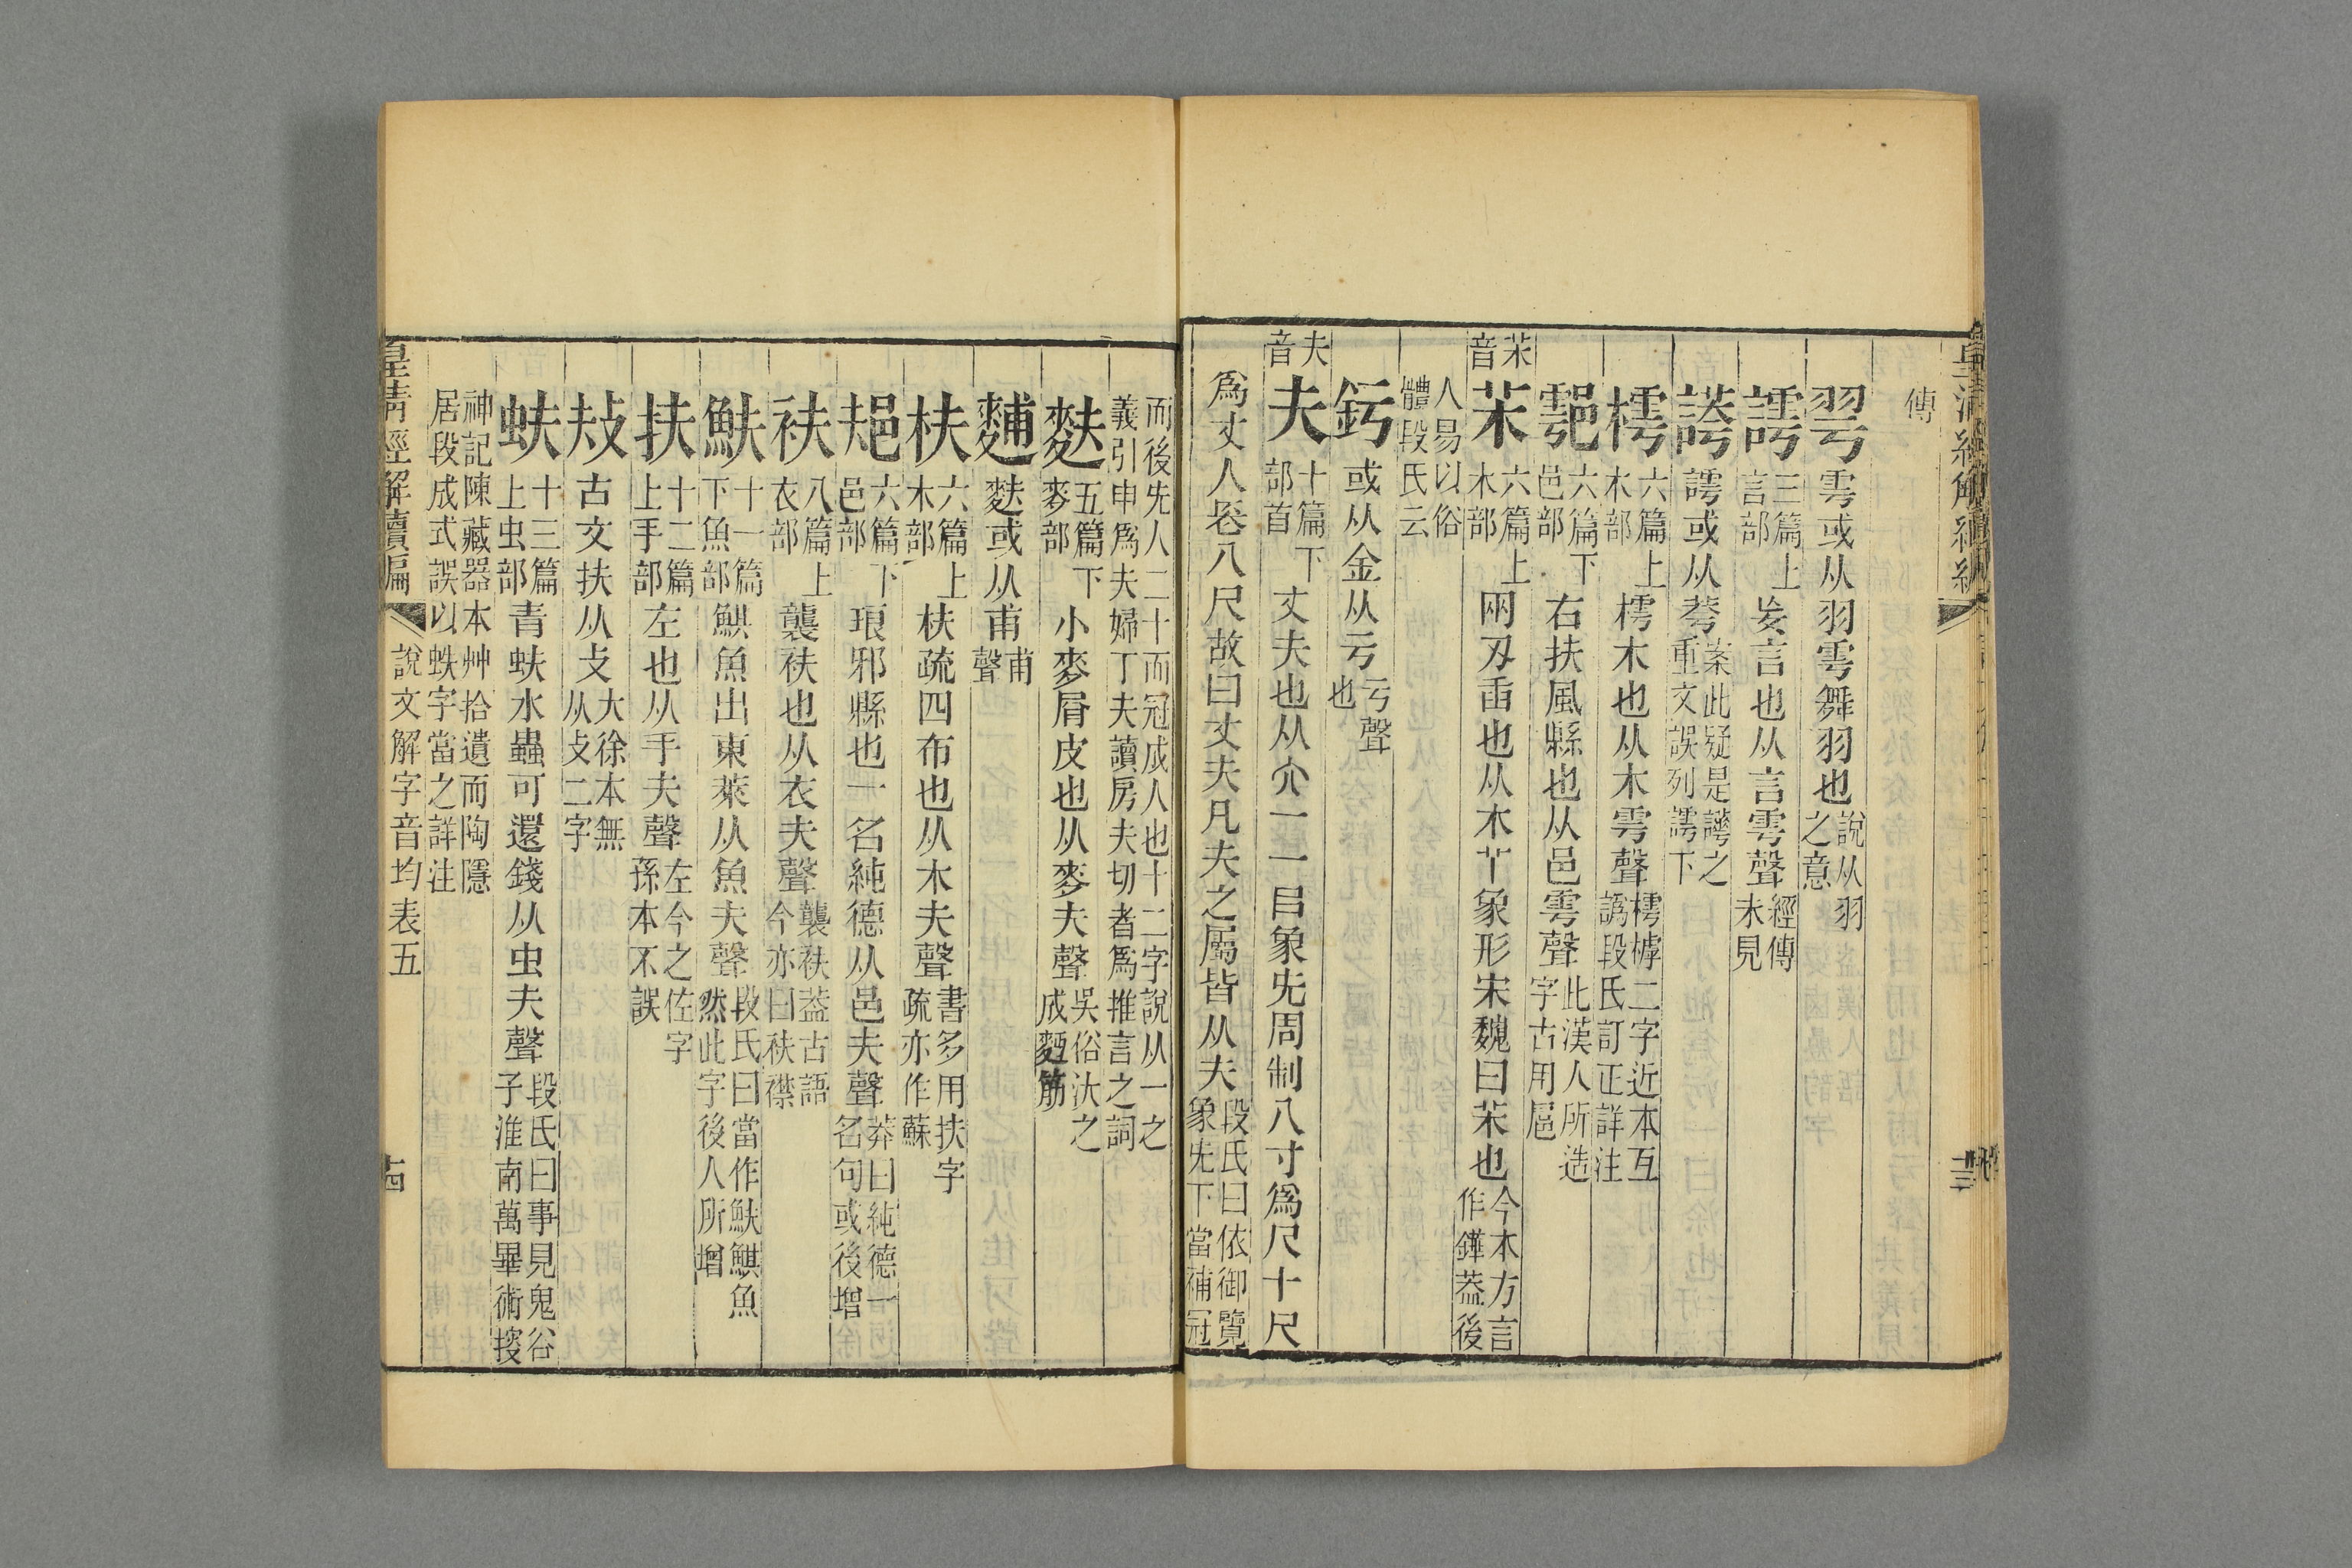 傳
䨒雩或从羽雩舞羽也說从羽之意
謣三篇上言部妄言也从言雩聲經傳未見
𧪮謣或从荂案此疑是譁之重文誤列謣下
樗六篇上木部樗木也从木雩聲樗㯉二字近本互譌段氏訂正詳注
𨞙六篇下邑部右扶風縣也从邑雩聲此漢人所造字古用扈
苿音苿六篇上木部㒳刃臿也从木丫象形宋魏曰苿也今本方言作鏵葢後
人易以俗體段氏云
釫或从金从亏亏聲也
夫音夫十篇下部首丈夫也从大一一㠯象先周制八寸爲尺十尺
爲丈人長八尺故曰丈夫凡夫之屬皆从夫段氏曰依御覽象先下當補冠
而後先人二十而冠成人也十二字說从一之義引申爲夫婦丁夫讀房夫切者爲推言之詞
麩五篇下麥部小麥屑皮也从麥夫聲吳俗汏之成麪筋
䴸麩或从甫甫聲
枎六篇上木部枎疏四布也从木夫聲書多用扶字疏亦作蘇
邞六篇下邑部琅邪縣也一名純德从邑夫聲莽曰純德一名句或後增
衭八篇上衣部襲衭也从衣夫聲襲衭葢古語今亦曰衭襟
鮇十一篇下魚部鯕魚出東萊从魚夫聲段氏曰當作䱐鯕魚然此字後人所增
扶十二篇上手部左也从手夫聲左今之佐字孫本不誤
㪇古文扶从攴大徐本無从攴二字
蚨十三篇上虫部青蚨水蟲可還錢从虫夫聲段氏曰事見鬼谷子淮南萬畢術搜
神記陳藏器本艸拾遺而陶隱居段成式誤以蛛字當之詳注
皇清經解續編
說文解字音均表五
十四